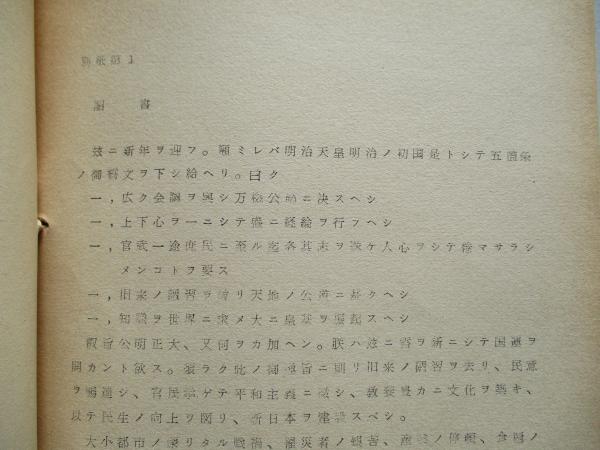 別紙第1
詔書
茲ニ新年ヲ迎フ。顧ミレバ明治天皇明治ノ初国是トシテ五箇条
ノ御誓文ヲ下シ給ヘリ。曰ク
一,広ク会議ヲ興シ万機公論ニ決スヘシ
一,上下心ヲ一ニシテ盛ニ経綸ヲ行フヘシ
一,官武一途庶民ニ至ル迄各其志ヲ遂ケ人心ヲシテ倦マサラシ
メンコトヲ要ス
一,旧来ノ陋習ヲ破リ天地ノ公道ニ基クヘシ
一,知識ヲ世界ニ求メ大ニ皇基ヲ振起スヘシ
叡旨公明正大、又何ヲカ加ヘン。朕ハ茲ニ誓ヲ新ニシテ国運ヲ
開カント欲ス。須ラク此ノ御趣旨ニ則リ旧来ノ陋習ヲ去リ、民意
ヲ暢達シ、官民挙ゲテ平和主義ニ徹シ、教養豊カニ文化ヲ築キ、
以テ民生ノ向上ヲ図リ、新日本ヲ建設スベシ。
大小都市ノ蒙リタル戦禍、罹災者ノ艱苦、産業ノ停頓、食糧ノ